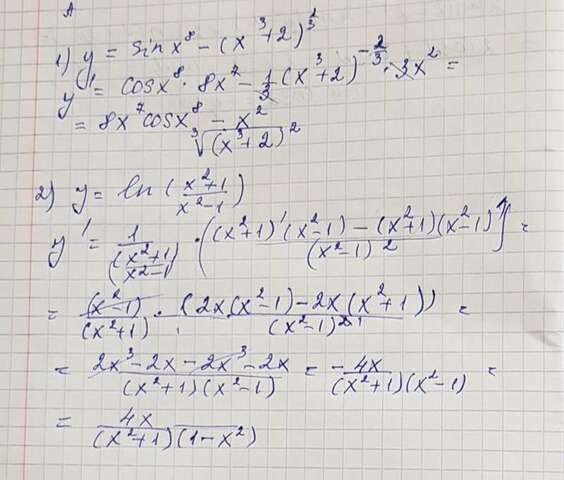 A
1) y = sin x⁸ - (x³+2)^(1/3)
y' = cosx⁸ · 8x⁷ - 1/3 (x³+2)^(-2/3) · 3x² =
= 8x⁷cosx⁸ - x²/∛(x³+2)²
2) y = ln((x²+1)/(x²-1))
y' = 1/((x²+1)/(x²-1)) · (((x²+1)'(x²-1) - (x²+1)(x²-1)')/(x²-1)²) =
= (x²-1)/(x²+1) · (2x(x²-1) - 2x(x²+1))/(x²-1)² =
= (2x³ - 2x - 2x³ - 2x)/((x²+1)(x²-1)) = -4x/((x²+1)(x²-1)) =
= 4x/((x²+1)(1-x²))